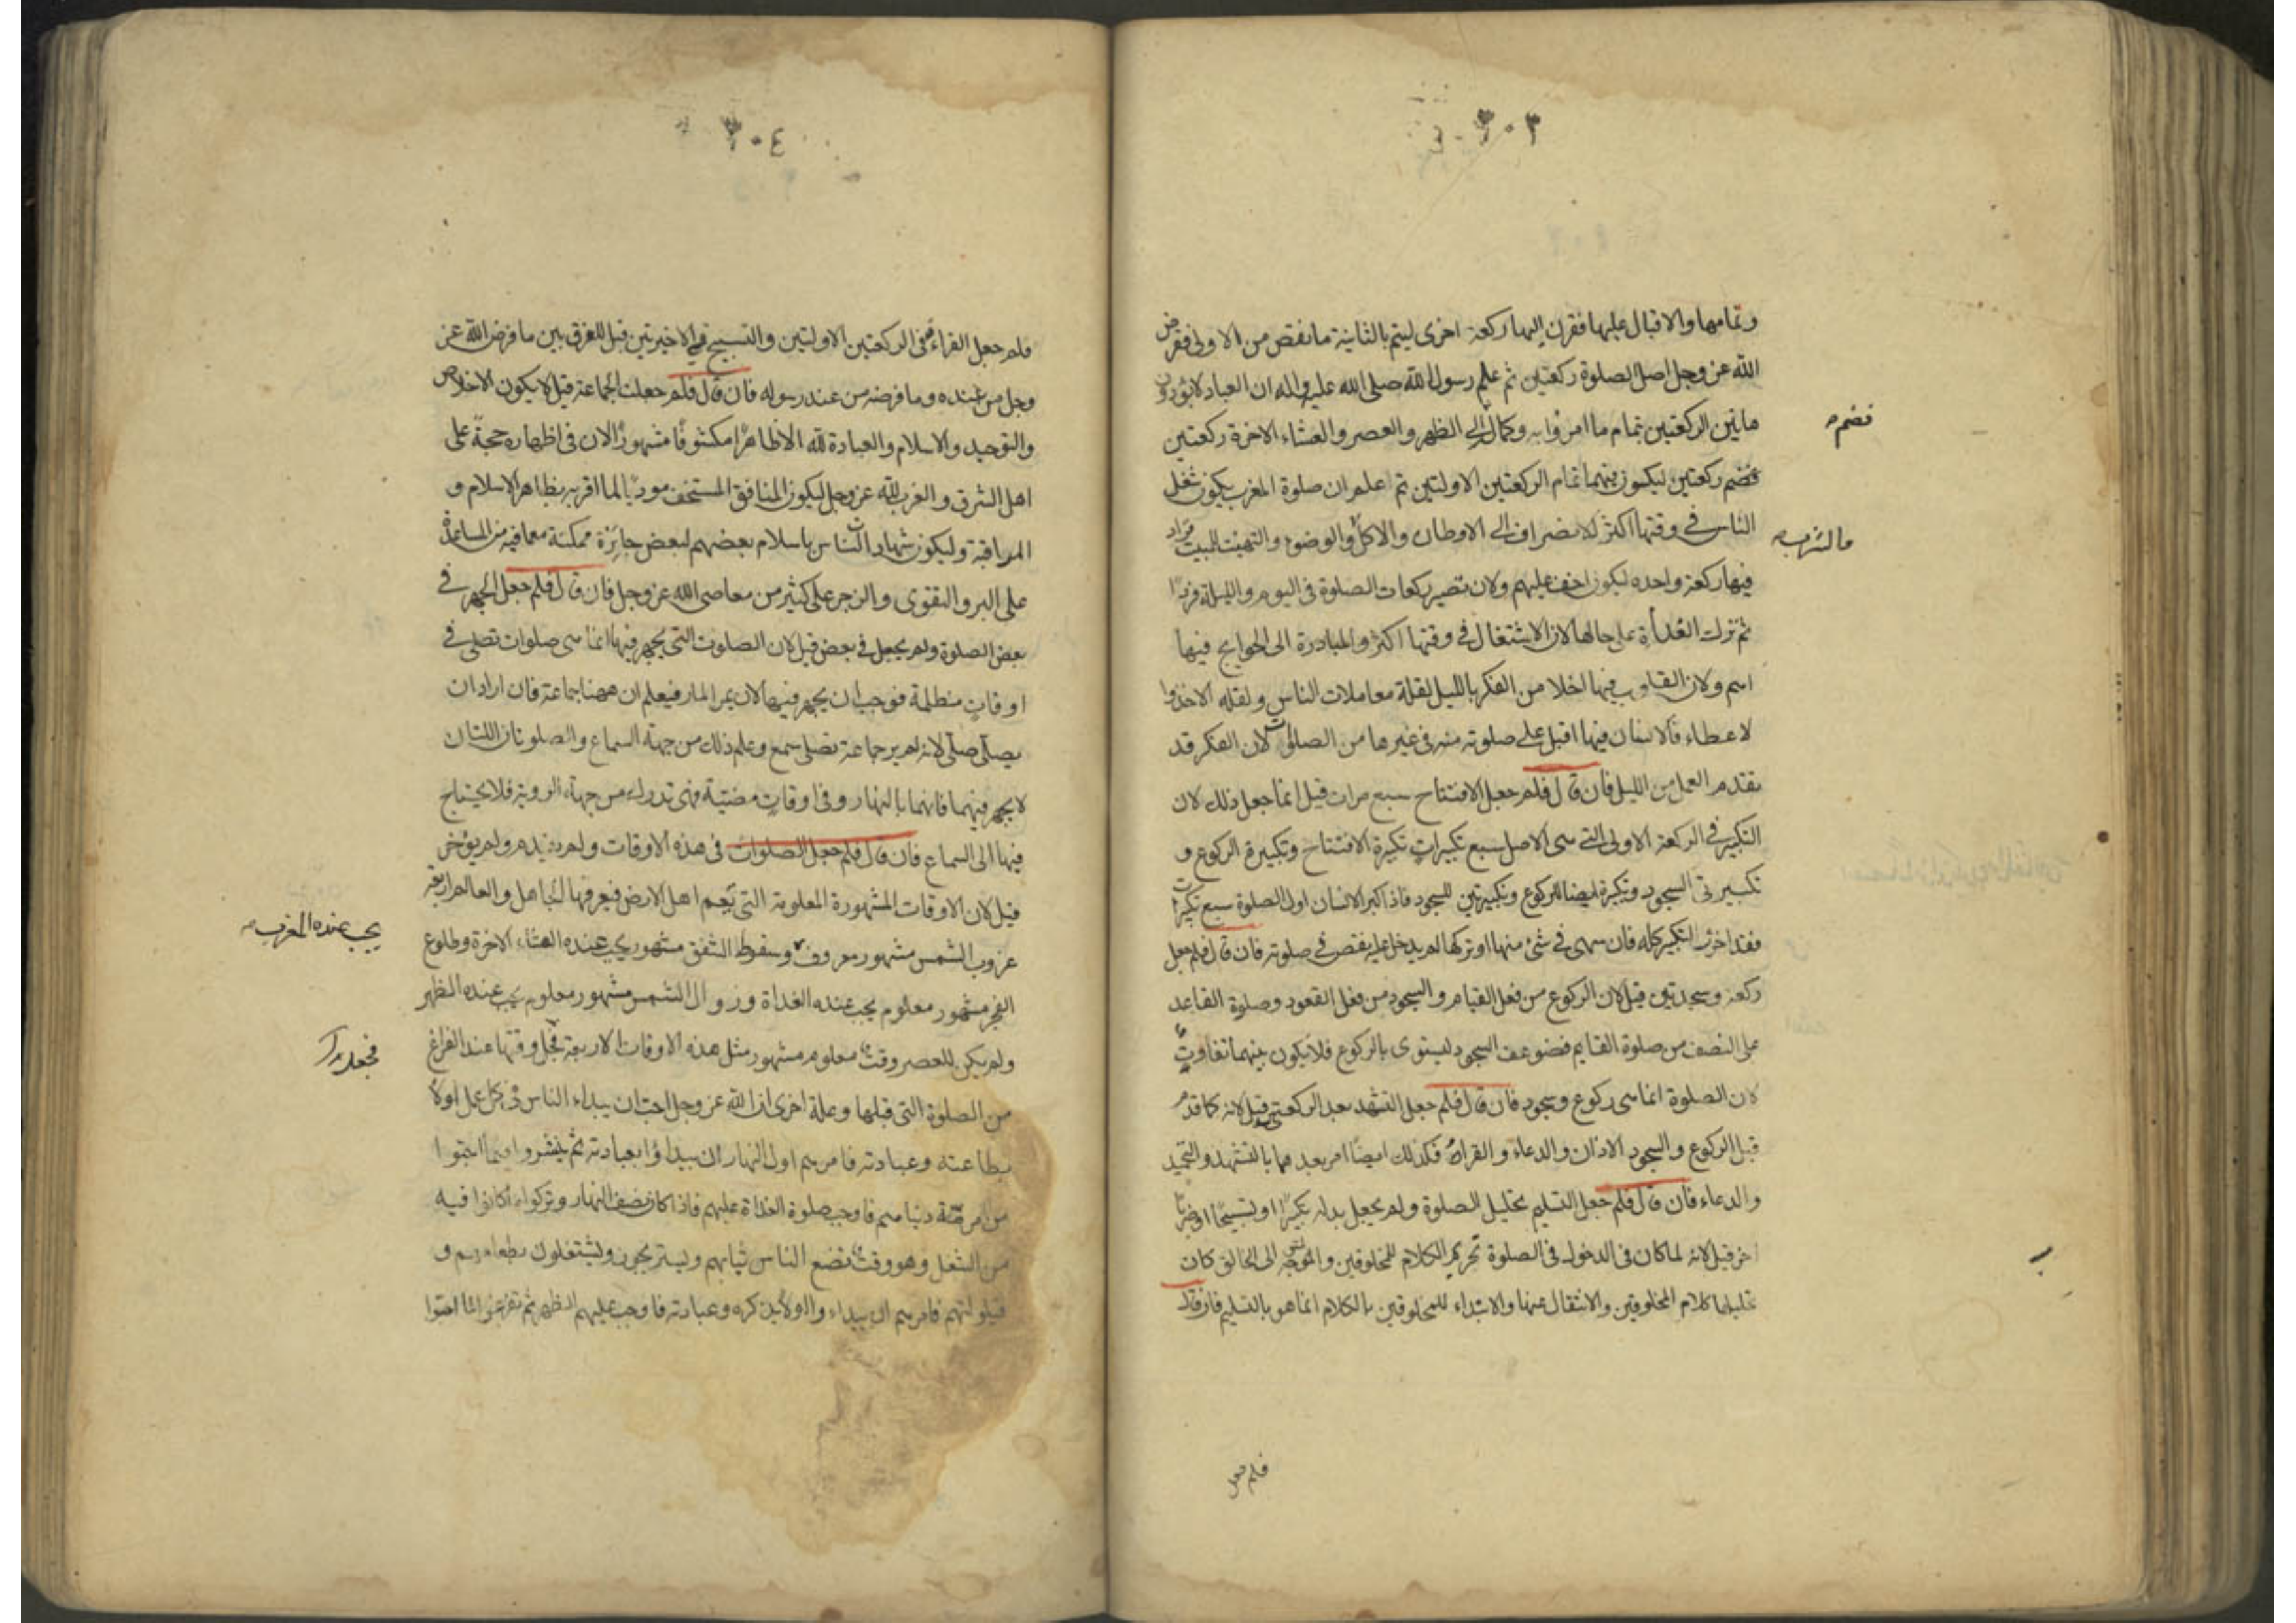 ٣٠٣
وتمامها والاقبال عليها فقرن اليها ركعة اخرى ليتم بالثانية ما نقص من الاولى ففرض
الله عز وجل اصل الصلوة ركعتين ثم علم رسول الله صلى الله عليه واله ان العباد لا يؤدون
هاتين الركعتين بتمام ما امروا به وكماله الى الظهر والعصر والعشاء الاخرة ركعتين
فضم
فضم ركعتين ليكون فيهما تمام الركعتين الاولتين ثم اعلم ان صلوة المغرب يكون شغل
الناس في وقتها اكثر للانصراف الى الاوطان والاكل والوضوء والتهيئة للمبيت فزاد
والشرب
فيها ركعة واحده ليكون اخف عليهم ولان تصير ركعات الصلوة في اليوم والليلة فردا
ثم ترك الغداة على حالها لان الاشتغال في وقتها اكثر والمبادرة الى الحوايج فيها
اعم ولان القلوب فيها اخلا من الفكر بالليل لقلة معاملات الناس ولقله الاخذ وا
لاعطاء فالانسان فيها اقبل على صلوته منه في غيرها من الصلوات لان الفكر قد
تقدم العمل من الليل فان قال فلم جعل الافتتاح سبع مرات قيل انما جعل ذلك لان
التكبير في الركعة الاولى التي هي الاصل سبع تكبيرات تكبيرة الافتتاح وتكبيرة الركوع و
تكبيرتى السجود وتكبيرة ايضا للركوع وتكبيرتين للسجود فاذا كبر الانسان اول الصلوة سبع تكبيرات
فقد احرز التكبير كله فان سهى في شئ منها او تركها لم يدخل عليه نقص في صلوته فان قال فلم جعل
ركعة وسجدتين قيل لان الركوع من فعل القيام والسجود من فعل القعود وصلوة القاعد
على النصف من صلوة القايم فضوعف السجود ليستوى بالركوع فلا يكون بينهما تفاوت
لان الصلوة انما هي ركوع وسجود فان قال فلم جعل التشهد بعد الركعتين قيل لانه كما قدم
قبل الركوع والسجود الاذان والدعاء والقراءة فكذلك ايضا امر بعدها بالتشهد والتحميد
والدعاء فان قال فلم جعل التسليم تحليل الصلوة ولم يجعل بدله تكبيرا او تسبيحا او ضربا
اخر قيل لانه لما كان في الدخول في الصلوة تحريم الكلام للمخلوقين والتوجه الى الخالق كان
تحليلها كلام المخلوقين والانتقال عنها والابتداء للمخلوقين بالكلام انما هو بالتسليم فان قال
فلم جعل
٣٠٤
فلم جعل القراءة في الركعتين الاولتين والتسبيح في الاخيرتين قيل للفرق بين ما فرض الله عز
وجل من عنده وما فرضه من عند رسوله فان قال فلم جعلت الجماعة قيل لا يكون الاخلاص
والتوحيد والاسلام والعبادة لله الا ظاهرا مكشوفا مشهورا لان في اظهاره حجة على
اهل الشرق والغرب لله عز وجل ليكون المنافق المستخف مؤديا لما اقر به بظاهر الاسلام و
المراقبة وليكون شهادات الناس باسلام بعضهم لبعض جائزة ممكنة مع ما فيه من المساعدة
على البر والتقوى والزجر على كثير من معاصى الله عز وجل فان قال فلم جعل الجهر في
بعض الصلوة ولم يجعل في بعض قيل لان الصلوت التي يجهر فيها انما هي صلوات تصلى في
اوقات مظلمة فوجب ان يجهر فيها لان يمر المار فيعلم ان ههنا جماعة فان اراد ان
يصلى صلى لانه لم ير جماعة تصلى سمع وعلم ذلك من جهة السماع والصلوتان اللتان
لا يجهر فيهما فانهما بالنهار وفي اوقات مضيئة فهى تدرك من جهة الروية فلا يحتاج
فيها الى السماع فان قال فلم جعل الصلوات في هذه الاوقات ولم يقدم ولم يؤخر
قيل لان الاوقات المشهورة المعلومة التي تعم اهل الارض فيعرفها الجاهل والعالم اربعة
غروب الشمس مشهور معروف وسقوط الشفق مشهور يجب عنده العشاء الاخرة وطلوع
يجب عنده المغرب
الفجر مشهور معلوم يجب عنده الغداة وزوال الشمس مشهور معلوم يجب عنده الظهر
ولم يكن للعصر وقت معلوم مشهور مثل هذه الاوقات الاربعة فجعل وقتها عند الفراغ
فجعل
من الصلوة التي قبلها وعلة اخرى ان الله عز وجل احب ان يبداء الناس في كل عمل اولا
بطاعته وعبادته فامرهم اول النهار ان يبداؤا بعبادته ثم ينتشروا فيما احبوا
من مرمة دنياهم فاوجب صلوة الغداة عليهم فاذا كان نصف النهار وتركوا ما كانوا فيه
من الشغل وهو وقت تضع الناس ثيابهم ويستريحون ويشتغلون بطعامهم و
قيلولتهم فامرهم ان يبداء واولا بذكره وعبادته فاوجب عليهم الظهر ثم تفرغوا لما احبوا